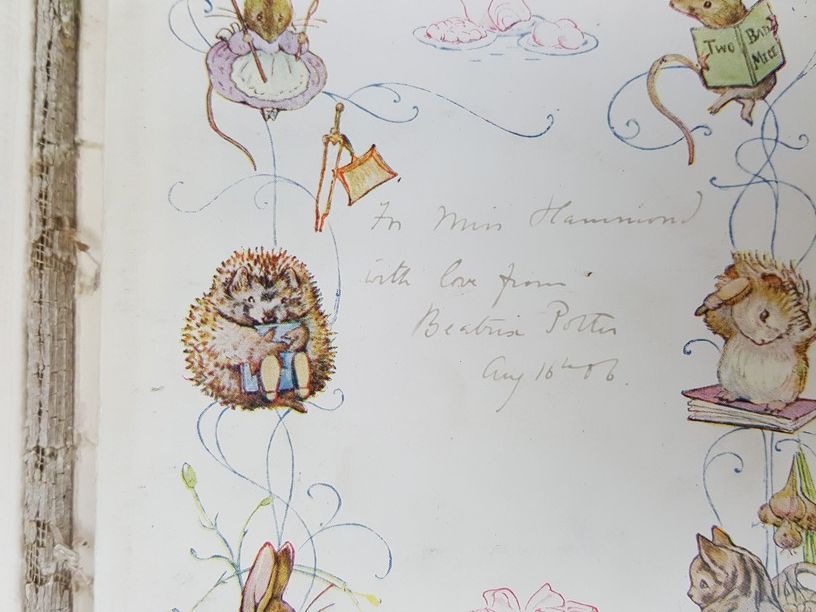 TWO BAD MICE
For Miss Hammond
with love from
Beatrix Potter
Aug 16th 06.